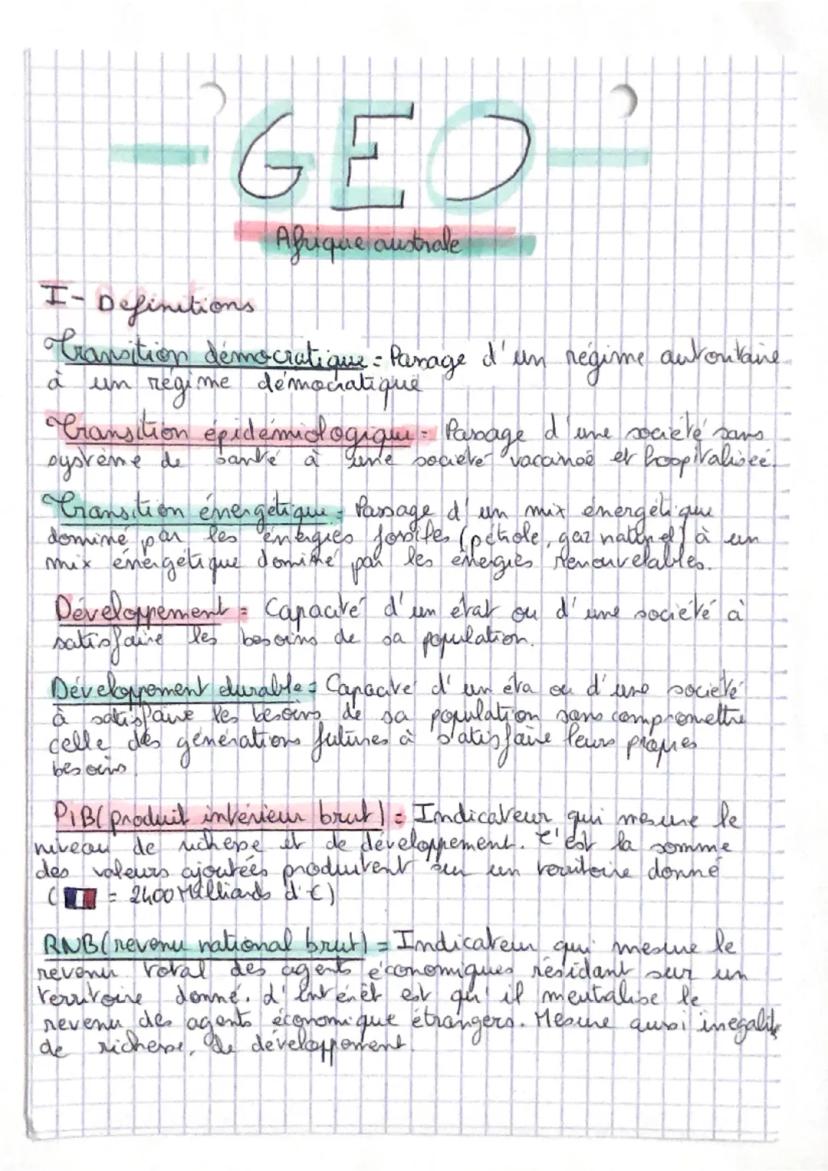 GEO
Afrique australe
I- Definitions
Transition démocratique = Passage d'un régime autoritaire
à un régime démocratique
Transition épidémiologique = Passage d'une société sans
système de santé à une société vacanoé et hospitalisée.
Transition énergétique = Passage d'un mix énergétique
dominé par les énergies fossiles (pétrole, gaz naturel) à un
mix énergétique dominé par les énergies renouvelables.
Développement = Capacité d'un état ou d'une société à
satisfaire les besoins de sa population.
Développement durable = Capacité d'un éta ou d'une société
à satisfaire les besoins de sa population sans compromettre
celle des générations futures à satisfaire leurs propres
besoins.
PIB (produit intérieur brut) = Indicateur qui mesure le
niveau de richesse et de développement. C'est la somme
des valeurs ajoutées produitent sur un territoire donné
( = 2400 Milliards d'€)
RNB (revenu national brut) = Indicateur qui mesure le
revenu total des agents économiques résidant sur un
territoire donné. L'intérêt est qu'il meutalise le
revenu des agents économique étrangers. Mesure aussi inegalité
de richesse, de développement.